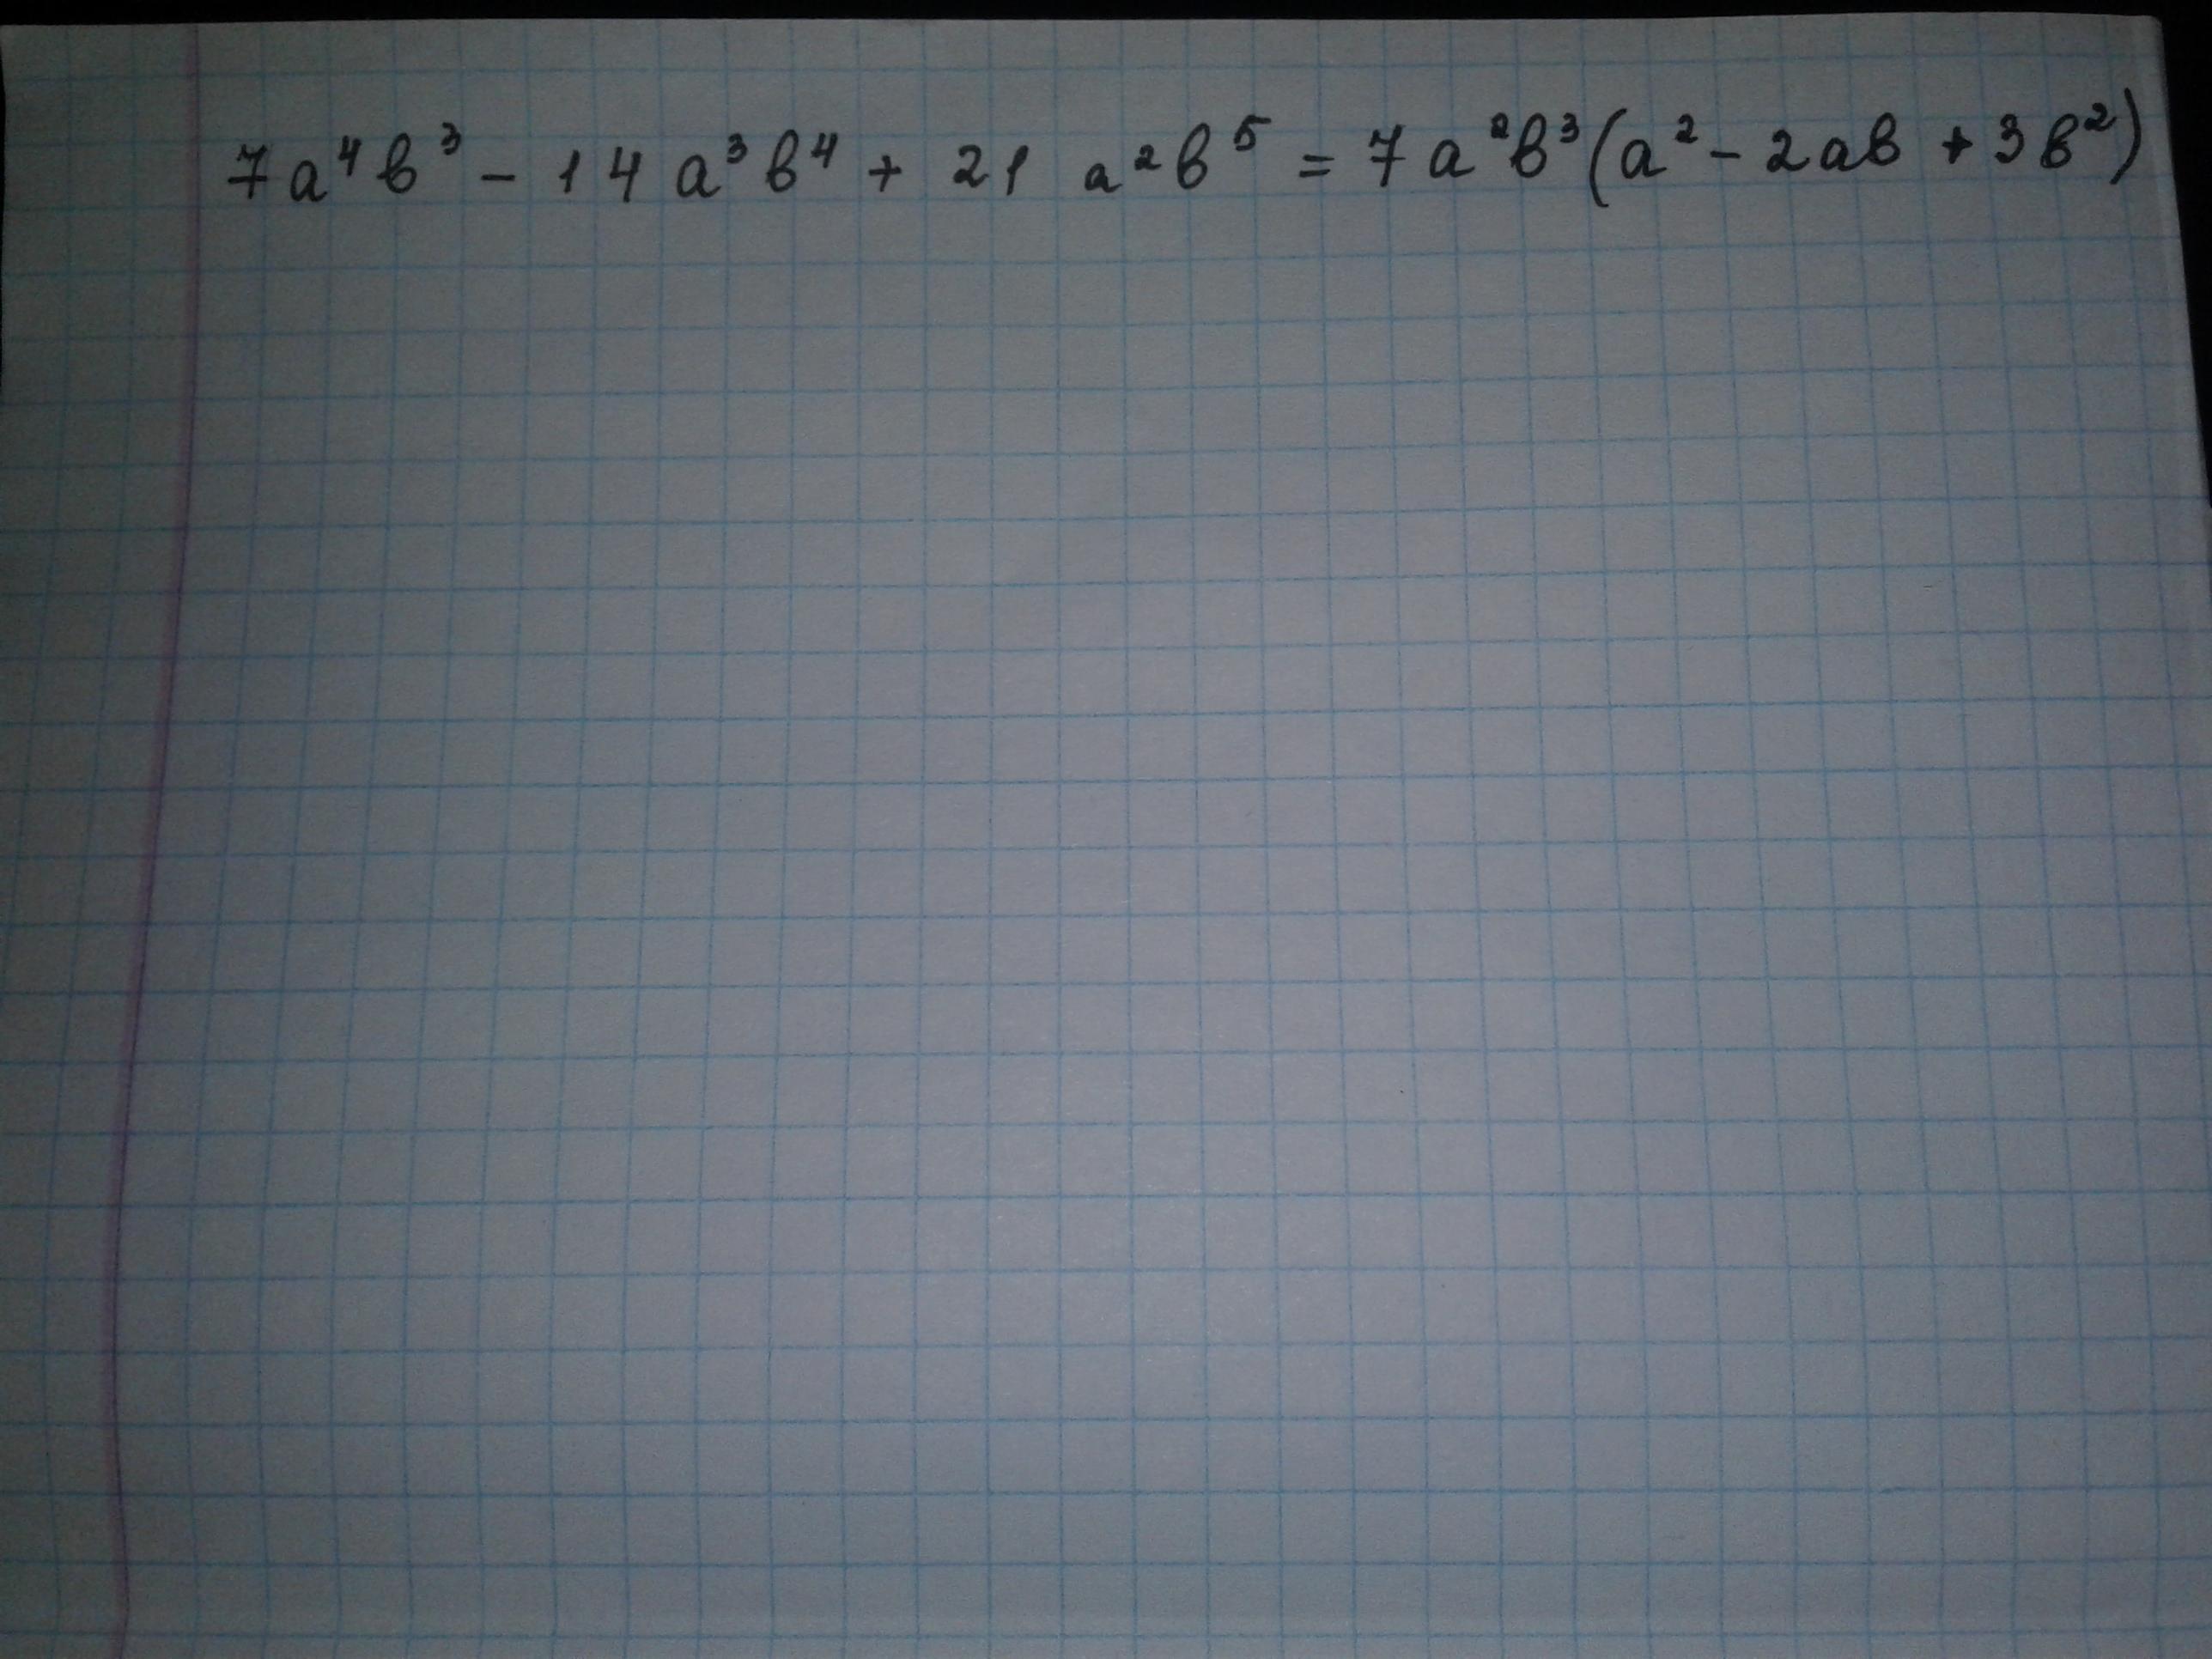 7a⁴b³ - 14a³b⁴ + 21 a²b⁵ = 7a²b³(a² - 2ab + 3b²)